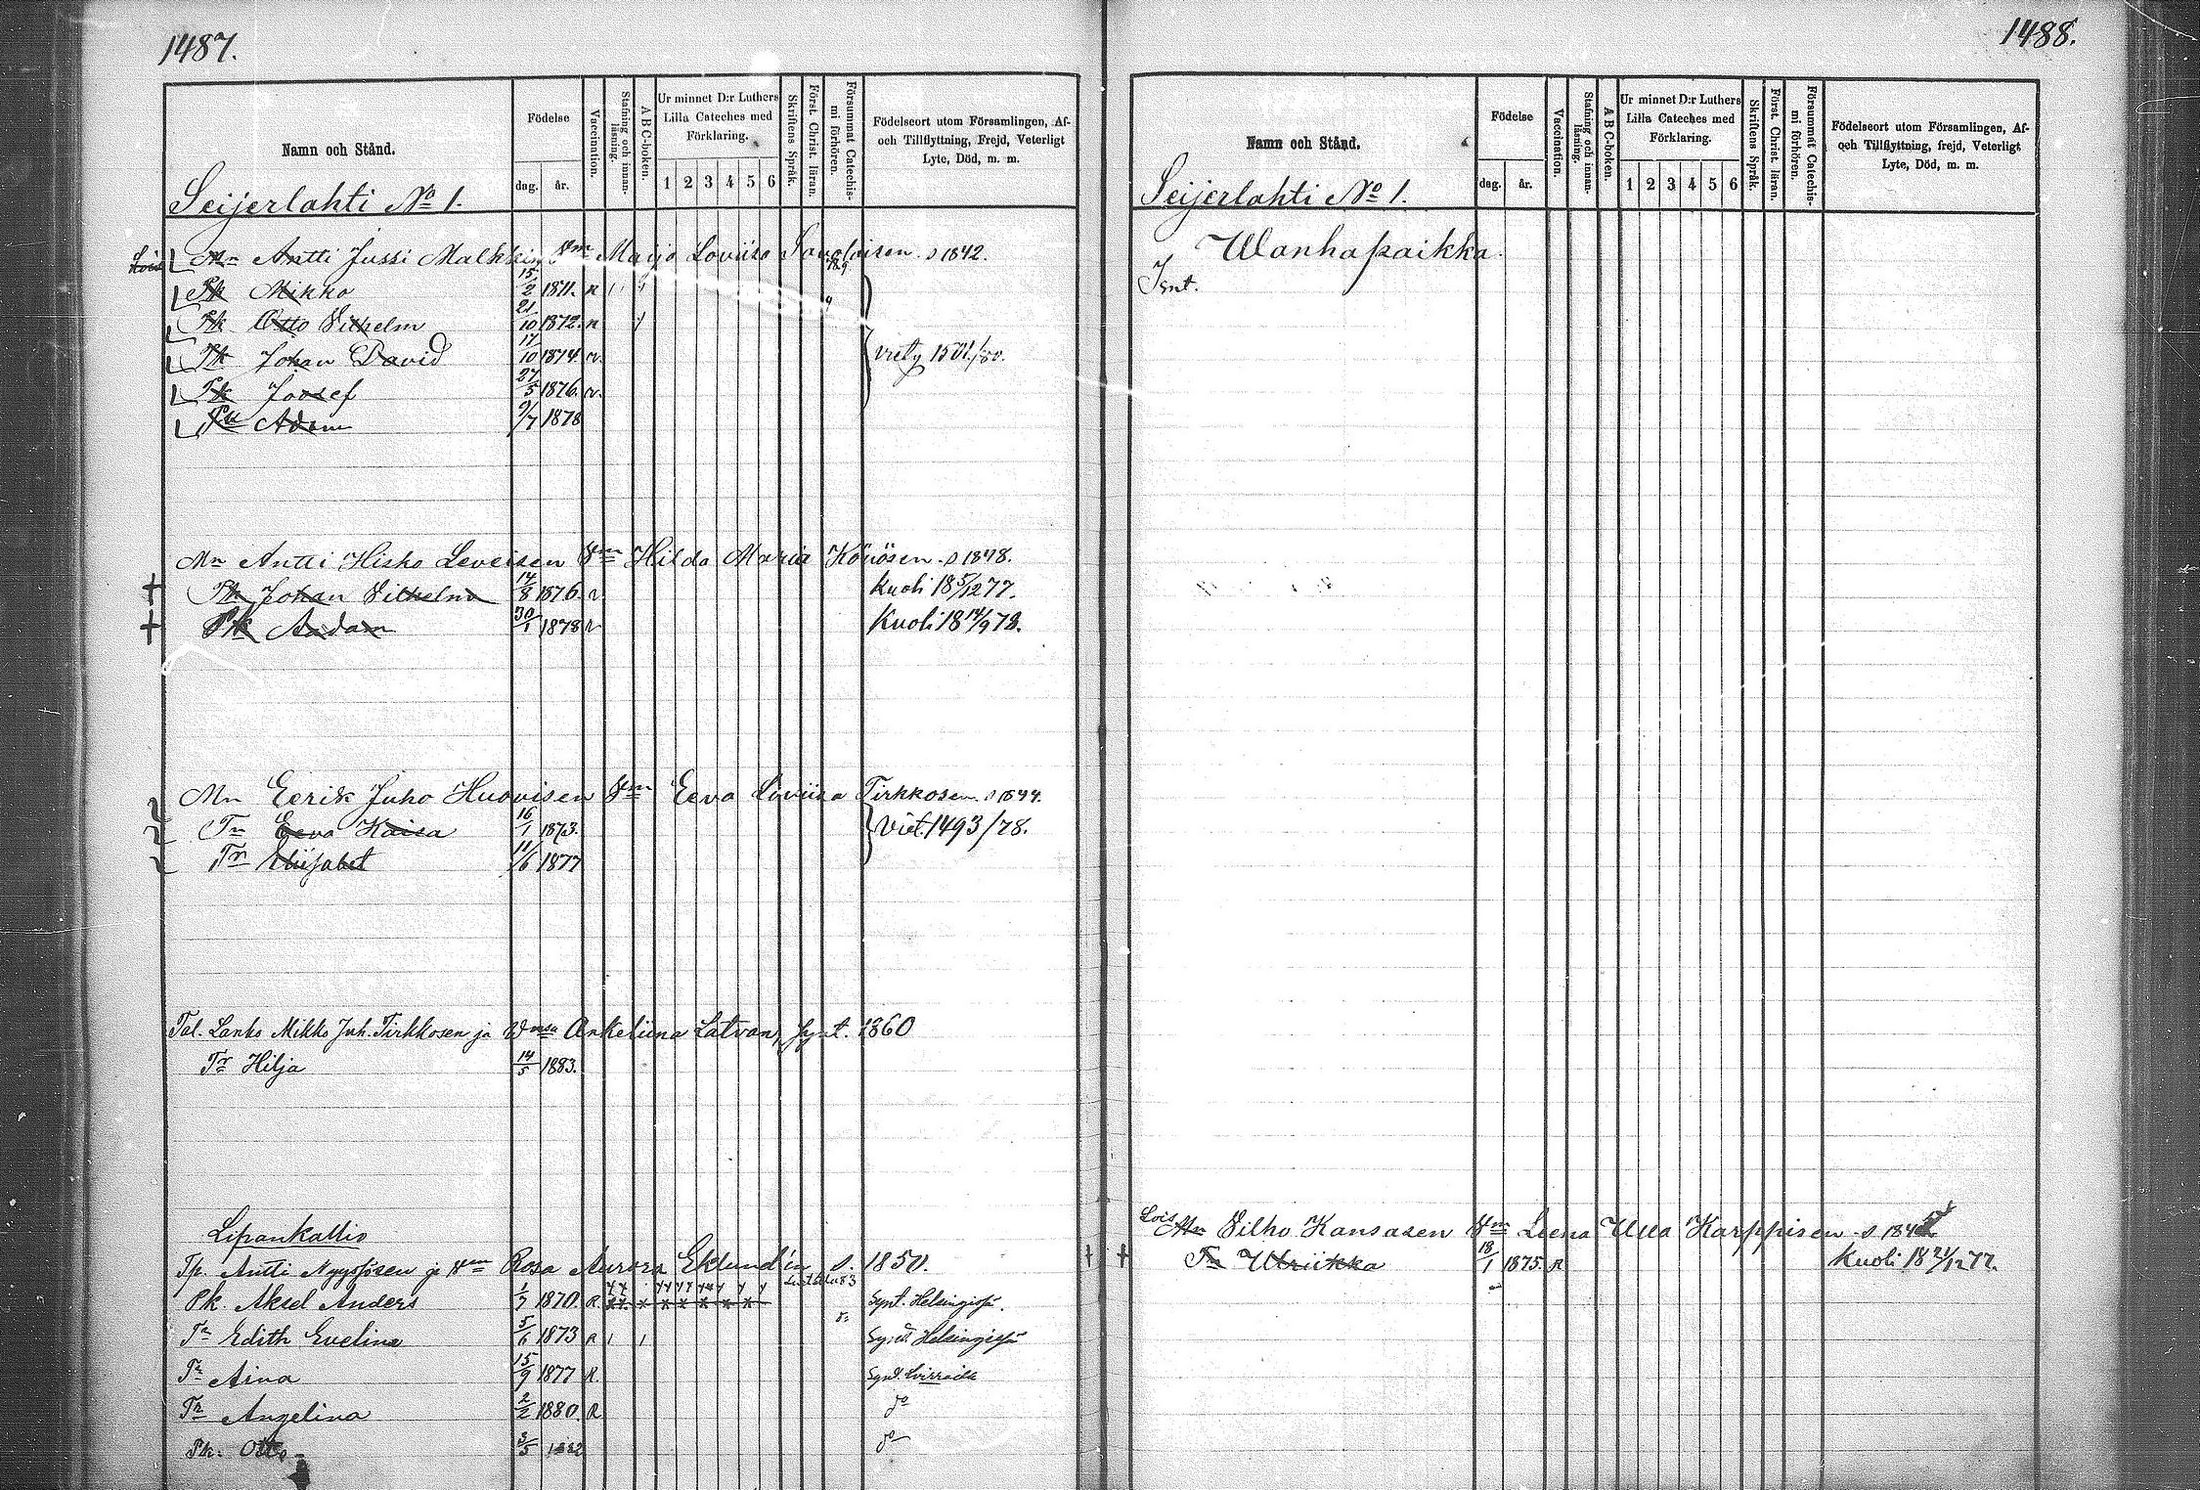 1487.
Namn och Stånd.
Födelse
dag. år.
Vaccination.
Stafning och innan-läsning.
A B C-boken.
Ur minnet D:r Luthers Lilla Cateches med Förklaring.
1 2 3 4 5 6
Skriftens Språk.
Först. Christ. läran.
Försummat Catechis-mi förhören.
Födelseort utom Församlingen, Af- och Tillflyttning, Frejd, Veterligt Lyte, Död, m. m.
Seijerlahti No 1.
Mn Antti Jussi Malkkis Vm Maija Loviisa s 1842.
Pk Mikko 15/2 1871. R
Pk Otto Vilhelm 21/10 1872. R
Pk Johan David 17/10 1874. R
Pk Joosef 27/5 1876. R
Pk Adam 9/7 1878
Mn Antti Hisko Leveisen Vm Hilda Maria Könösen s 1848.
Pk Johan Vilhelm 14/8 1876. R Kuoli 18 5/12 77.
Pk Aadam 30/1 1878 R Kuoli 18 14/9 78.
Mn Eerik Juho Huovisen Vm Eeva Loviisa Tirkkosen s 1844.
Tr Eeva Kaisa 16/1 1873. Viet. 1493/78.
Tr Eliisabet 11/6 1877
Tal. Lanko Mikko Juh. Tirkkosen ja Vmsa Ankeliina Latvan, synt. 1860
Tr Hilja 14/5 1883.
Lipankallio
Tp. Antti Nyyssösen ja Vm Rosa Aurora Eklund'in s. 1850.
Pk. Aksel Anders 1/7 1870. R Synt. Helsingissä.
Tr Edith Evelina 5/6 1873 R Synt Helsingissä
Tr Aina 15/9 1877 R.
Tr Angelina 2/2 1880. R do
Pk. Otto 3/5 1882 do
1488.
Namn och Stånd.
Födelse
dag. år.
Vaccination.
Stafning och innan-läsning.
A B C-boken.
Ur minnet D:r Luthers Lilla Cateches med Förklaring.
1 2 3 4 5 6
Skriftens Språk.
Först. Christ. läran.
Försummat Catechis-mi förhören.
Födelseort utom Församlingen, Af- och Tillflyttning, frejd, Veterligt Lyte, Död, m. m.
Seijerlahti No 1.
Wanhapaikka.
Lois Mn Vilho Kansasen Vm Leena Ulla Karppisen s
Tr Ulriikka 18/1 1875. R Kuoli 18 21/12 77.